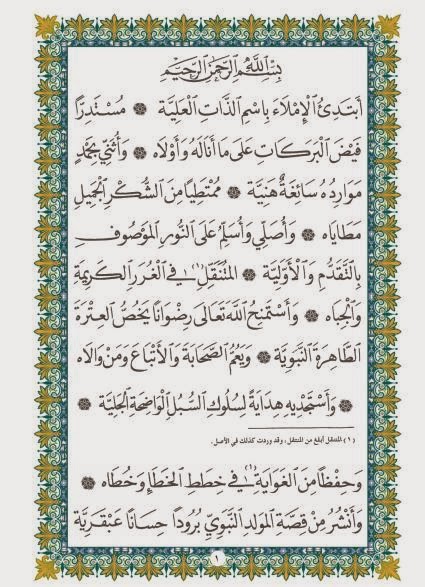 بِسْمِ اللَّهِ الرَّحْمَنِ الرَّحِيمِ
أَبْتَدِئُ الْإِمْلَاءَ بِاسْمِ الذَّاتِ الْعَلِيَّةِ ۞ مُسْتَدِرًّا
فَيْضَ الْبَرَكَاتِ عَلَى مَا أَنَالَهُ وَأَوْلَاهُ ۞ وَأُثَنِّي بِحَمْدٍ
مَوَارِدُهُ سَائِغَةٌ هَنِيَّة ۞ مُمْتَطِيًا مِنَ الشُّكْرِ الْجَمِيلِ
مَطَايَاه ۞ وَأُصَلِّي وَأُسَلِّمُ عَلَى النُّورِ الْمَوْصُوفِ
بِالتَّقَدُّمِ وَالْأَوَّلِيَّة ۞ الْمُتَنَقِّلِ(١) فِي الْغُرَرِ الْكَرِيمَةِ
وَالْجِبَاه ۞ وَأَسْتَمْنِحُ اللَّهَ تَعَالَى رِضْوَانًا يَخُصُّ الْعِتْرَةَ
الطَّاهِرَةَ النَّبَوِيَّة ۞ وَيَعُمُّ الصَّحَابَةَ وَالْأَتْبَاعَ وَمَنْ وَالَاه
۞ وَأَسْتَجْدِيهِ هِدَايَةً لِسُلُوكِ السُّبُلِ الْوَاضِحَةِ الْجَلِيَّة ۞
(١) المتنقل أبلغ من المنتقل، وقد وردت كذلك في الأصل.
وَحِفْظًا مِنَ الْغَوَايَةِ(١) فِي خِطَطِ الْخَطَإِ وَخُطَاه ۞
وَأَنْشُرُ مِنْ قِصَّةِ الْمَوْلِدِ النَّبَوِيِّ بُرُودًا حِسَانًا عَبْقَرِيَّة
١